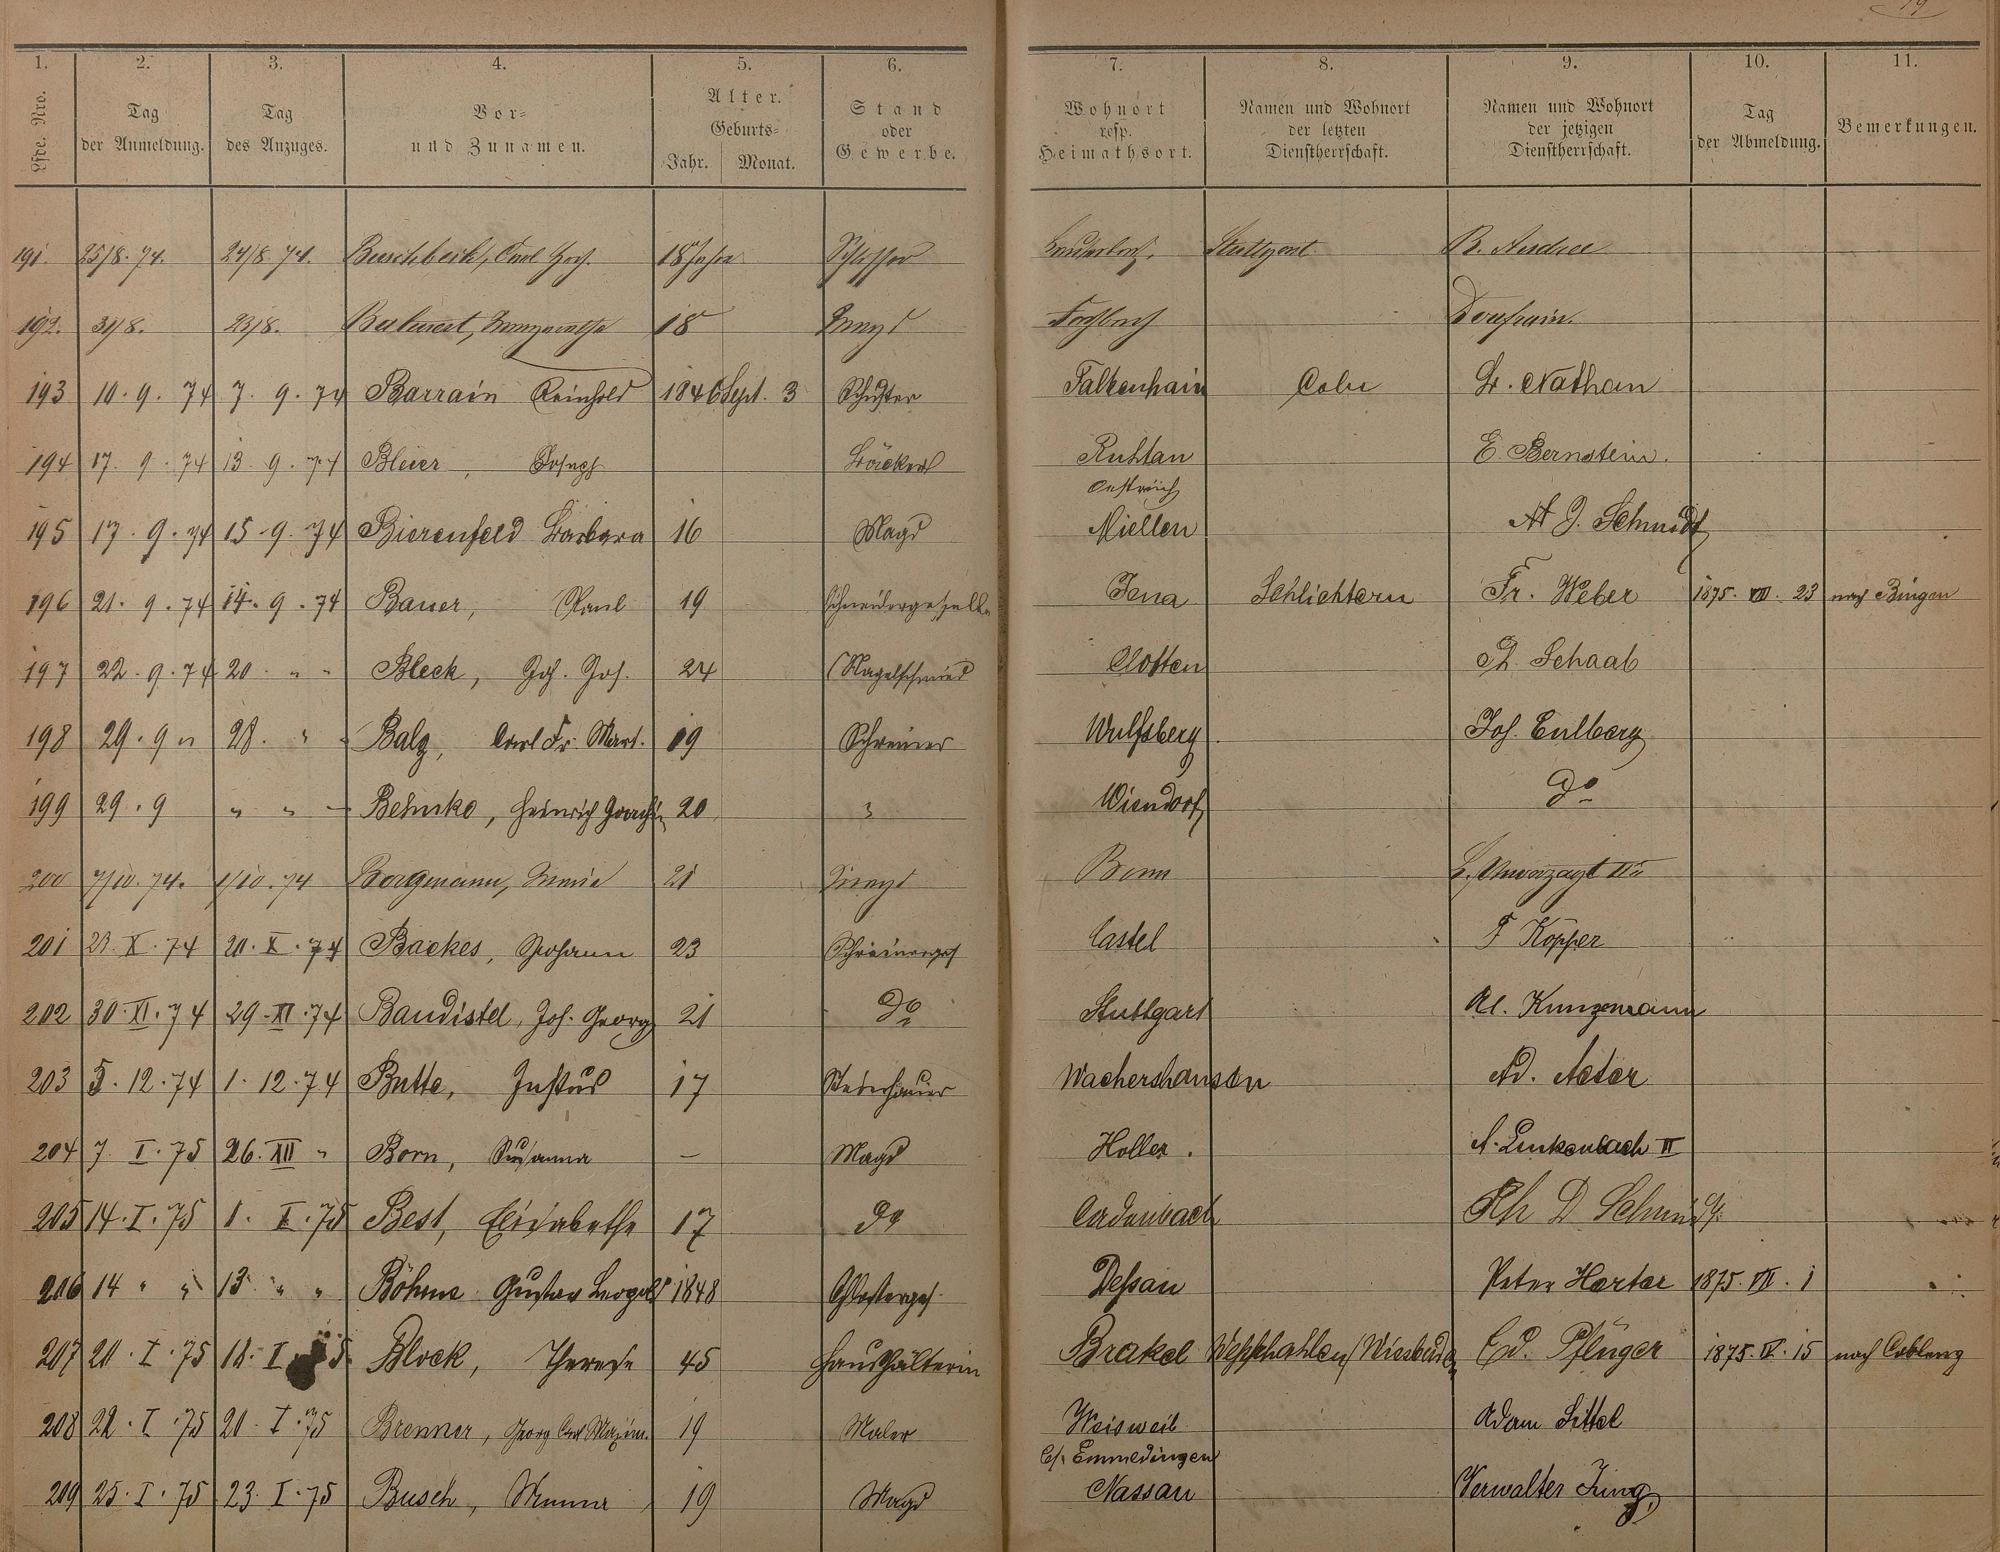 19
1. 2. 3. 4. 5. 6. 7. 8. 9. 10. 11.
Lfde. Nro. Tag der Anmeldung. Tag des Anzuges. Vor- und Zunamen. Alter. Geburts- Jahr. Monat. Stand oder Gewerbe. Wohnort resp. Heimathsort. Namen und Wohnort der letzten Dienstherrschaft. Namen und Wohnort der jetzigen Dienstherrschaft. Tag der Abmeldung. Bemerkungen.
191. 25/8. 74. 24/8. 74. Buschbeck, Carl 18 Jahre Stuttgart B. Andree
192. 31/8. 23/8. 18 Magd
193 10. 9. 74 7. 9. 74 Barrain Reinhold 1846 Sept. 3 Schuster Falkenhain Coln Nathan
194 17. 9. 74 13. 9. 74 Bleier, Joseph Bäcker Ruhtan E. Bernstein.
Oestreich
195 17. 9. 74 15. 9. 74 Bierenfeld Barbara 16 Magd Miellen J. Schmidt
196 21. 9. 74 14. 9. 74 Bauer, Paul 19 Schneidergeselle Jena Schlichtern Fr. Weber 1875. VIII. 23 nach Bingen
197 22. 9. 74 20 " " Bleck, Joh. Jos. 24 Nagelschmied Clotten Schaab
198 29. 9 " 28. " " Balz, Carl Fr. Mart. 19 Schreiner Wulfsberg Jos. Eulberg
199 29. 9 " " Behnke, Heinrich Joachim 20 " Wiendorf do
200 7/10. 74. 1/10. 74 Borgmann, Maria 21 Magd Bonn
201 23. X. 74 20. X. 74 Backes, Johann 23 Schreinerges Castel F Köpper
202 30. XI. 74 29. XI. 74 Baudistel, Joh. Georg 21 do Stuttgart Kunzmann
203 5. 12. 74 1. 12. 74 Butte, Justus 17 Steinhauer Wachershausen Ad. Astor
204 7. I. 75 26. XII " Born, Susanna — Magd Holler. A. Linkenbach II
205 14. I. 75 1. I. 75 Best, Elisabethe 17 do Cadenbach Ph D Schmidt
206 14 " " 13 " " Böhme Gustav Leopold 1848 Dessau Peter Harter 1875. VII. 1
207 20. I. 75 18. I. 75 Block, Therese 45 Haushälterin Brakel Wiesbaden Ed. Pflüger 1875. IV. 15 nach Coblenz
208 22. I. 75 20. I. 75 Brenner, Georg Carl Maxim. 19 Maler Weisweil Adam Sittel
Emmedingen
209 25. I. 75 23. I. 75 Busch, 19 Magd Nassau Verwalter Jung